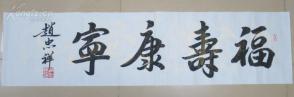 福壽康寧
趙忠祥